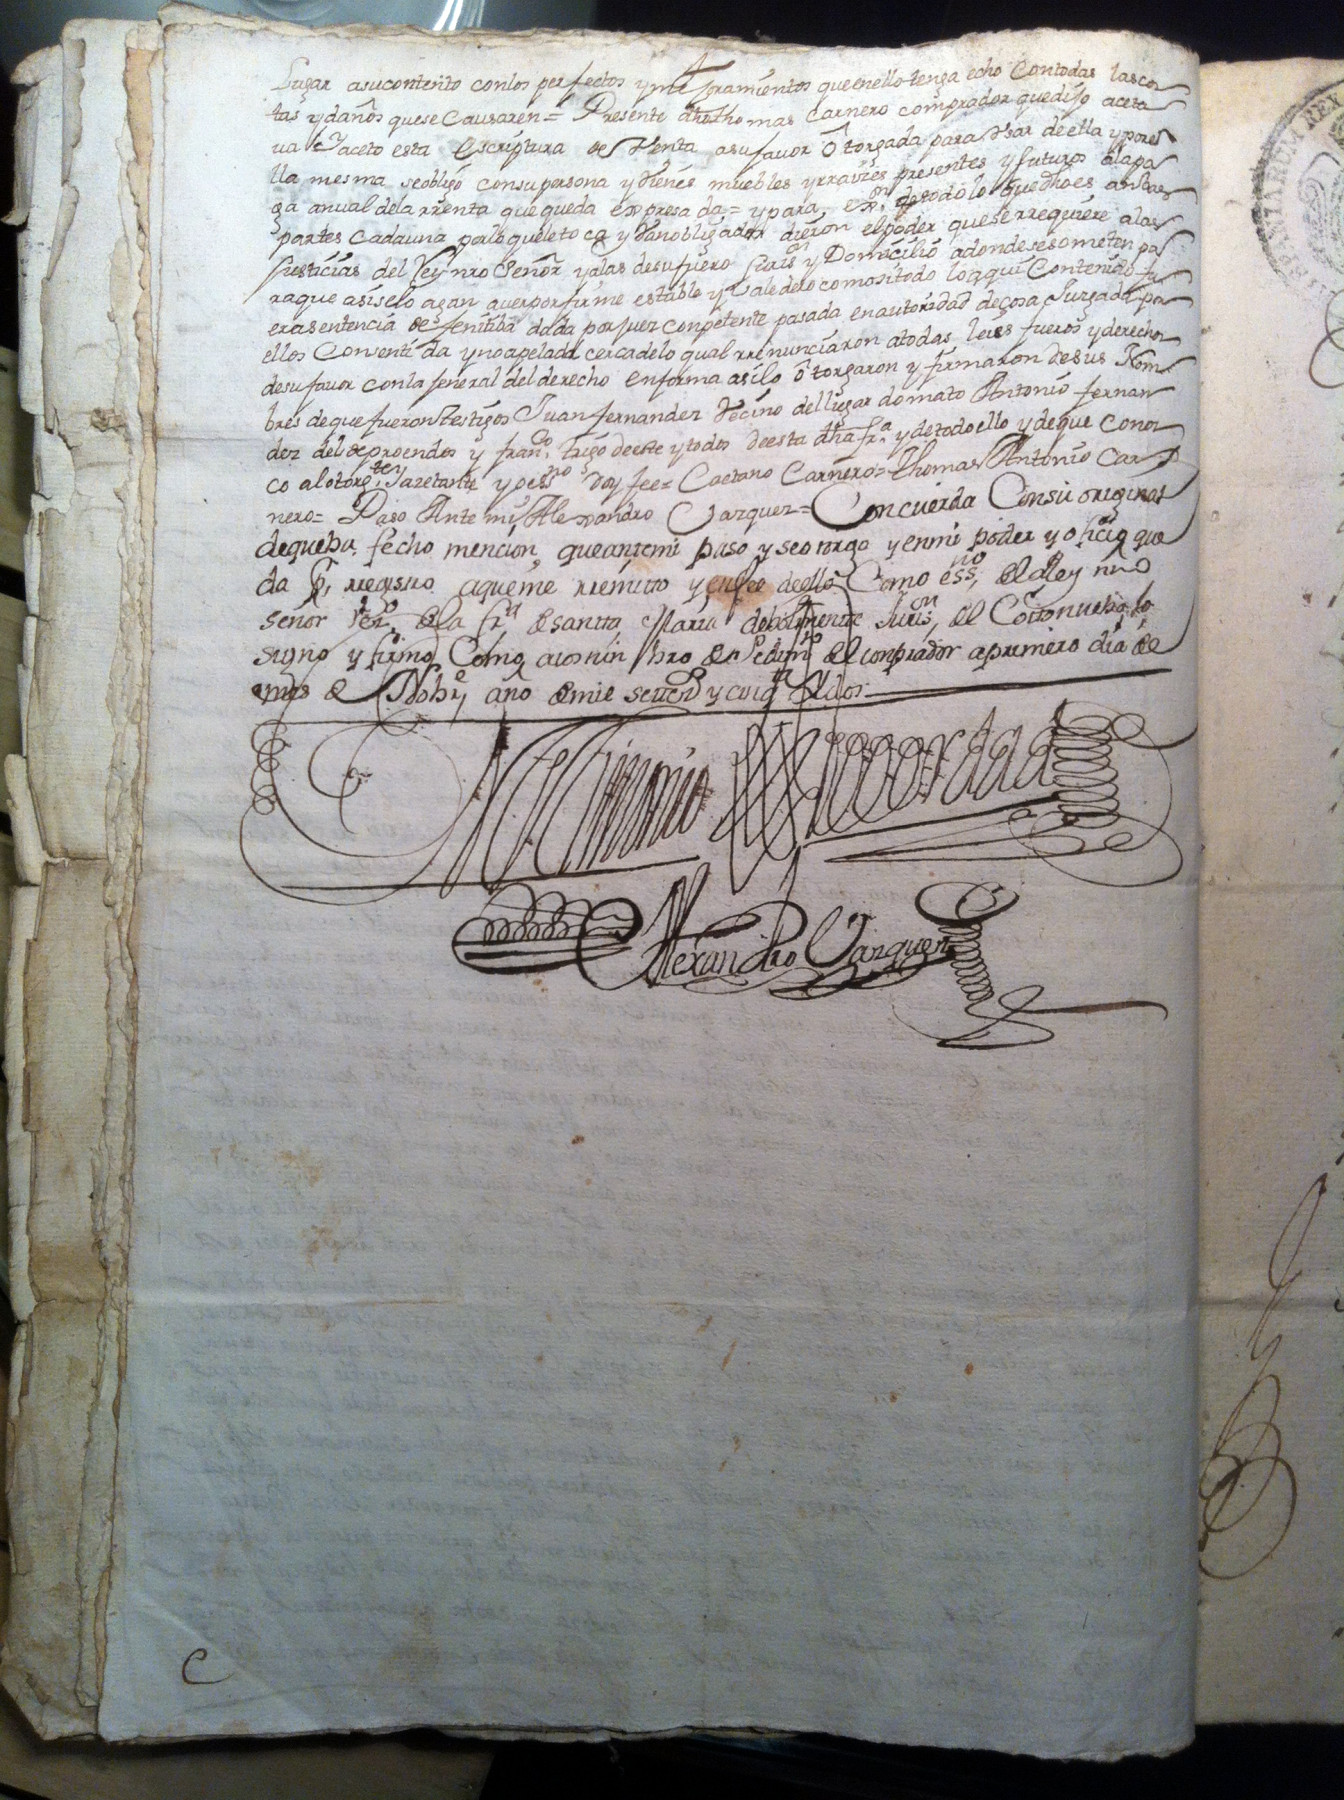 lugar asucontento conlos perfectos ymejoramientos queenello tenga echo Contodas lasco
tas ydaños quese Causaren= Presente dho thomas Carnero comprador quedijo aceta
va y aceto esta escriptura de Venta asufavor ôtorgada para Usar deella yporε
lla mesma seobligó consupersona yvienes muebles yrraíces presentes y futuros alapa
ga anual delarrenta que queda expresada= ypara exon detodolo quedhoes ambas
partes Cadauna porloqueletoca y vanobligados dieron elpoder quese rrequiere alas
Justicias del Rey nro Señor ydlas desufuero Juaison y Domicilio adondesesometen pa
raque asiselo agan averporfirme estable y Valedero comositodo loaqui Contenido fu
erasentencia definitiba dada porjuez conpetente pasada enautoridad decosa Jusgada por
ellos Consentida ynoapelada cercadelo qual rrenunciaron atodas leies fueros yderechos
desufavor conla Jeneral delderecho enforma asilo ôtorgaron y firmaron desus Nom
bres dequefueron testigos Juan fernandez Vecino dellugar domato Antonio fernan
dez del deproendos y franco trigo deeste ytodos deesta dha fra ydetodoello ydeque Conoz
co alotorgte Yazetante yoessno doy fee= Caetano Carnero= Thomas Antonio Car
nero= Paso Ante mi Alexandro Vazquez= Concuerda Consu original
dequeba fecho mencion queantemi paso yseotorgo yenmi poder y oficio que
da Pr rregistro aqueme rremito yenfee deello Como essno del Rey nro
señor dela fra de santa Maria Juron del Cotonuebo lo
signo y firmo Como acostumbro de Pedimto del conprador aprimero dia del
mes de Nobre año demil seteds y cinqta
Alexandro Vazquez
C